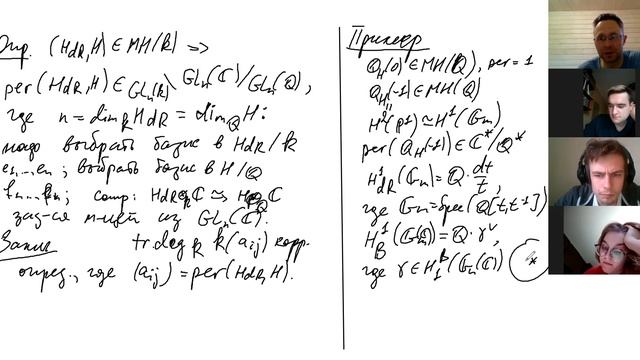 Опр. (H_dR, H) ∈ MH(k) =>
per(H_dR, H) ∈ GL_n(k)\GL_n(ℂ)/GL_n(ℚ),
где n = dim_k H_dR = dim_ℚ H:
надо выбрать базис в H_dR/k
e_1,...,e_n; выбрать базис в H/ℚ
f_1...f_n; comp: H_dR ⊗ ℂ ≃ H ⊗_ℚ ℂ
зад-ся м-цей из GL_n(ℂ).
Замеч. tr deg_k k(a_ij) корр.
опред., где (a_ij) = per(H_dR, H).
Пример
ℚ_H(0) ∈ MH(ℚ), per = 1
ℚ_H(-1) ∈ MH(ℚ)
H²(P¹) ≃ H¹(𝔾_m)
per(ℚ_H(-1)) ∈ ℂ*/ℚ*
H¹_dR(𝔾_m) = ℚ · dt/t,
где 𝔾_m = Spec(ℚ[t, t⁻¹])
H¹_B(𝔾_m(ℂ)) = ℚ · γ^∨,
где γ ∈ H_1^B(𝔾_m(ℂ))
*